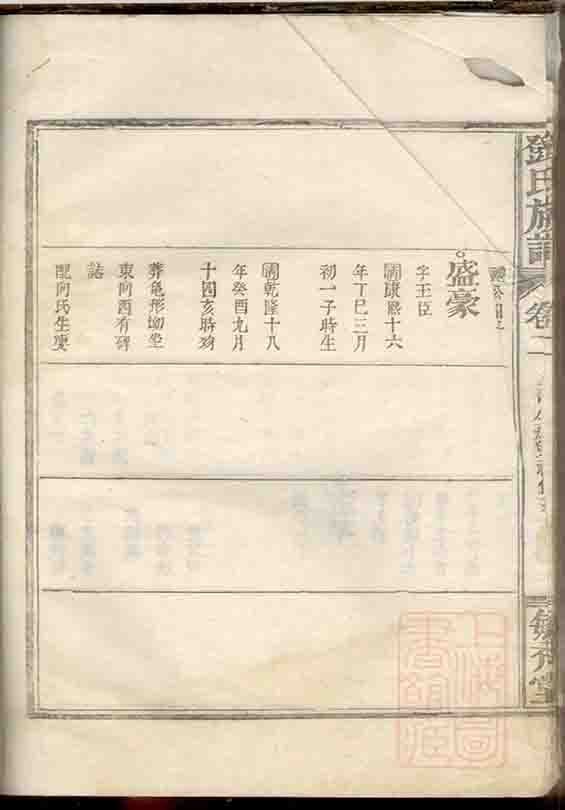 鄧氏族譜
卷二
盛豪
字王臣
清康熙十六
年丁巳三月
初一子時生
清乾隆十八
年癸酉九月
十四亥時歿
葬龜形坳坐
東向酉有碑
誌
配向氏生歿
上海圖
書館藏